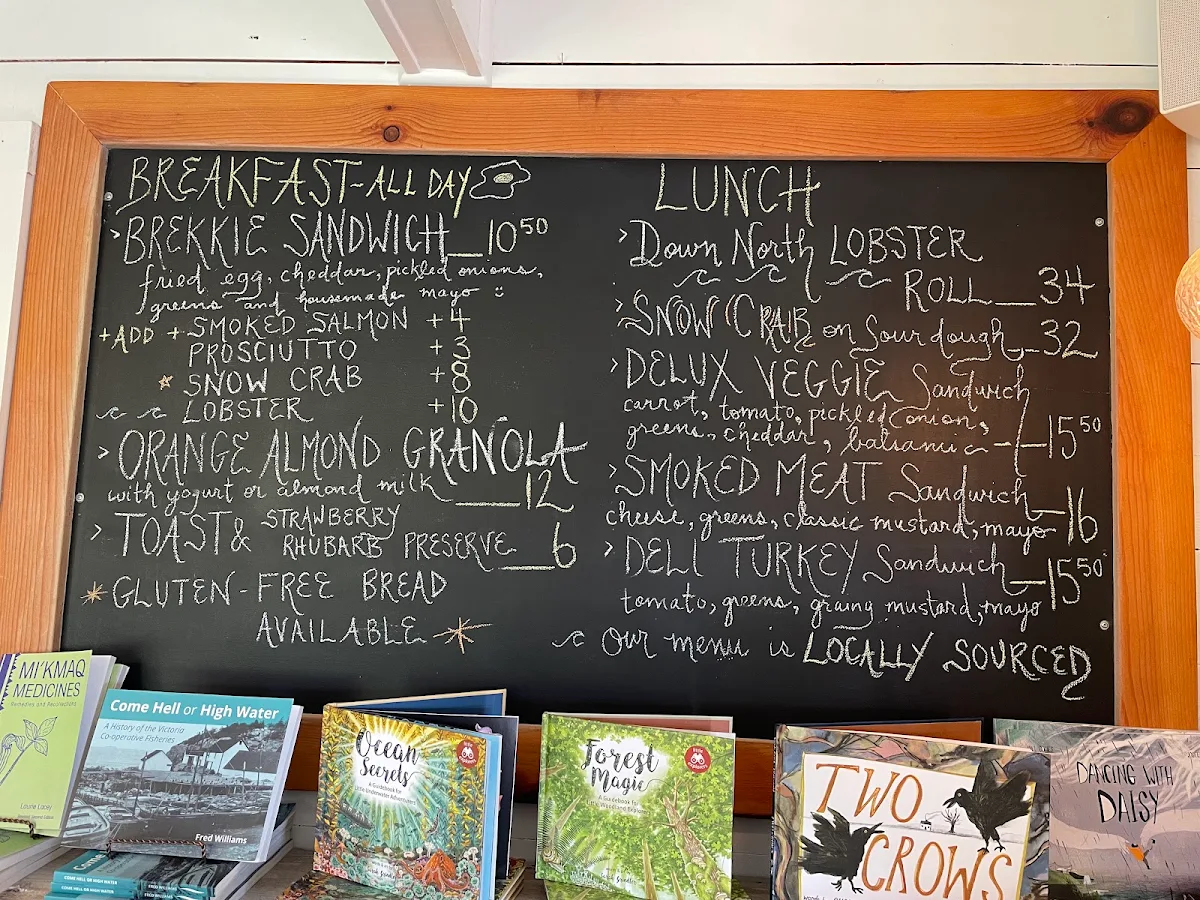 BREAKFAST-ALL DAY
>BREKKIE SANDWICH__10⁵⁰
fried egg, cheddar, pickled onions,
greens and housemade mayo :)
+ADD + SMOKED SALMON +4
PROSCIUTTO +3
SNOW CRAB +8
LOBSTER +10
> ORANGE ALMOND GRANOLA
with yogurt or almond milk____12
> TOAST & STRAWBERRY
RHUBARB PRESERVE__6
*GLUTEN-FREE BREAD
AVAILABLE*
LUNCH
>Down North LOBSTER
ROLL__34
>SNOW CRAB on Sourdough__32
>DELUX VEGGIE Sandwich
carrot, tomato, pickled onion,
greens, cheddar, balsamic--15⁵⁰
>SMOKED MEAT Sandwich_16
cheese, greens, classic mustard, mayo
>DELI TURKEY Sandwich_15⁵⁰
tomato, greens, grainy mustard, mayo
Our menu is LOCALLY SOURCED
MI'KMAQ
MEDICINES
Remedies and Recollections
Laurie Lacey
Come Hell or High Water
A History of the Victoria
Co-operative Fisheries
Fred Williams
COME HELL OR HIGH WATER
FRED WILLIAMS
Ocean
Secrets
A Guidebook for
Little Underwater Adventurers
Forest
Magic
A Guidebook for
Little Woodland Explorers
TWO
CROWS
DANCING WITH
DAISY